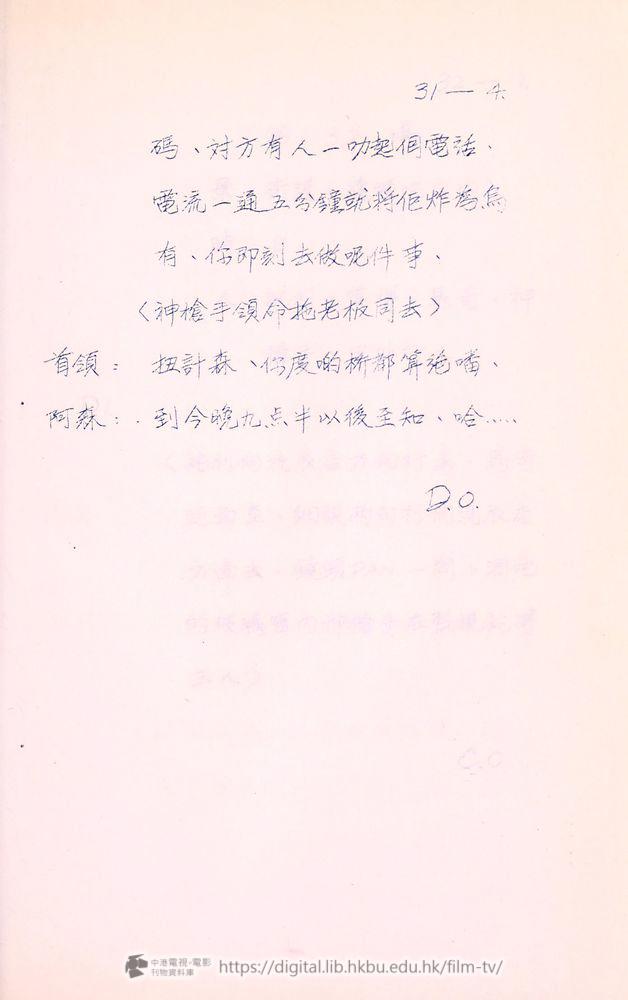 31 — 4.
碼、対方有人一叻起個電話、
電流一通五分鐘就將佢炸為烏
有、你即刻去做呢件事、
（神槍手領命拖老板同去）
首領：扭計森、你度啲橋都算絕噃、
阿森：．到今晚九点半以後至知、哈.....
D.O.
C.O
中港電視·電影
刊物資料庫
https://digital.lib.hkbu.edu.hk/film-tv/